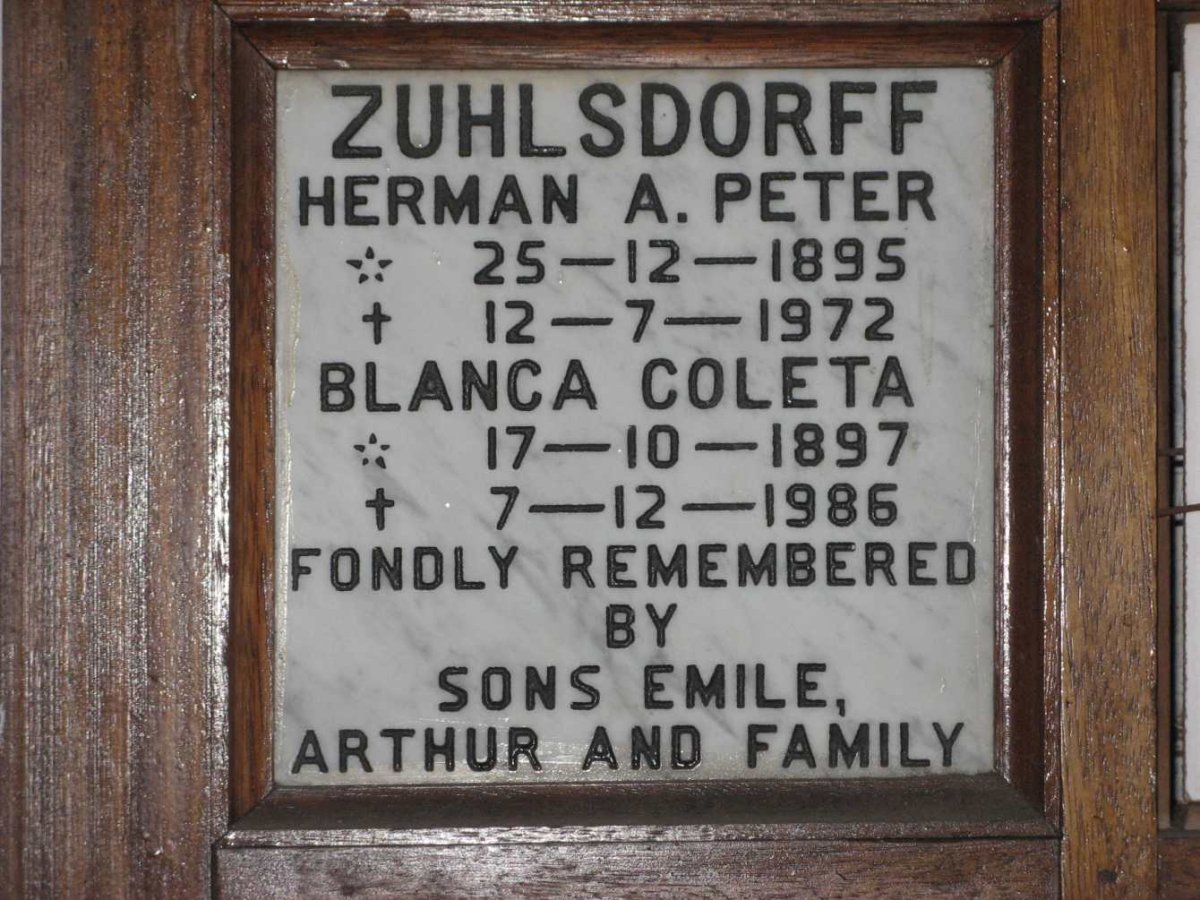 ZUHLSDORFF
HERMAN A. PETER
☆ 25—12—1895
† 12—7—1972
BLANCA COLETA
☆ 17—10—1897
† 7—12—1986
FONDLY REMEMBERED
BY
SONS EMILE,
ARTHUR AND FAMILY